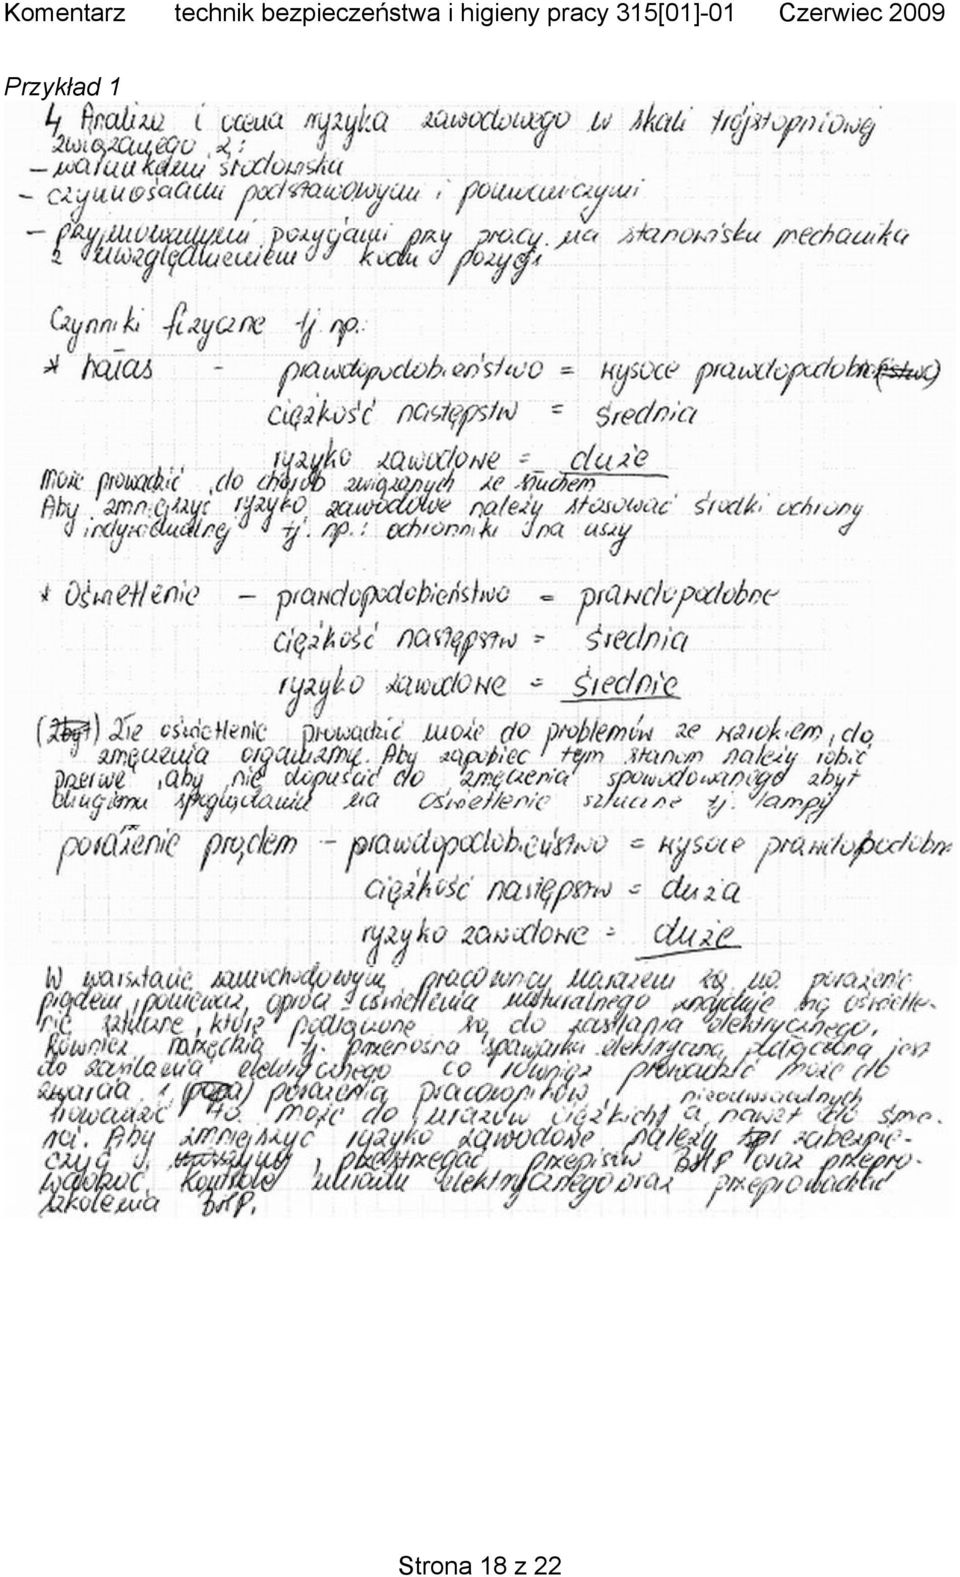 Komentarz technik bezpieczeństwa i higieny pracy 315[01]-01 Czerwiec 2009
Przykład 1
4 Analiza i ocena ryzyka zawodowego w skali trójstopniowej
związanego z:
- warunkami środowiska
- czynnościami podstawowymi i pomocniczymi
- przyjmowanymi pozycjami przy pracy na stanowisku mechanika
z uwzględnieniem kodu pozycji
Czynniki fizyczne tj. np.:
* hałas - prawdopodobieństwo = wysoce prawdopodobne
ciężkość następstw = średnia
ryzyko zawodowe = duże
Może prowadzić do chorób związanych ze słuchem
Aby zmniejszyć ryzyko zawodowe należy stosować środki ochrony
indywidualnej tj. np.: ochronniki na uszy
* Oświetlenie - prawdopodobieństwo = prawdopodobne
ciężkość następstw = średnia
ryzyko zawodowe = średnie
(zbyt) Złe oświetlenie prowadzić może do problemów ze wzrokiem, do
zmęczenia organizmu. Aby zapobiec tym stanom należy robić
przerwę, aby nie dopuścić do zmęczenia spowodowanego zbyt
długiemu spoglądaniu na oświetlenie sztuczne tj. lampy
porażenie prądem - prawdopodobieństwo = wysoce prawdopodobne
ciężkość następstw = duża
ryzyko zawodowe = duże
W warsztacie samochodowym pracownicy narażeni są na porażenie
prądem, ponieważ oprócz oświetlenia naturalnego znajduje się oświetle-
nie sztuczne, które podłączone są do zasilania elektrycznego.
Również narzędzia tj. przenośna spawarka elektryczna podłączona jest
do zasilania elektrycznego co również prowadzić może do
zwarcia i porażenia pracowników, nieodwracalnych
Prowadzić to może do urazów ciężkich a nawet do śmier-
ci. Aby zmniejszyć ryzyko zawodowe należy zabezpie-
czyć, przestrzegać przepisów BHP oraz przepro-
wadzać kontrole układu elektrycznego oraz przeprowadzać
szkolenia BHP.
Strona 18 z 22